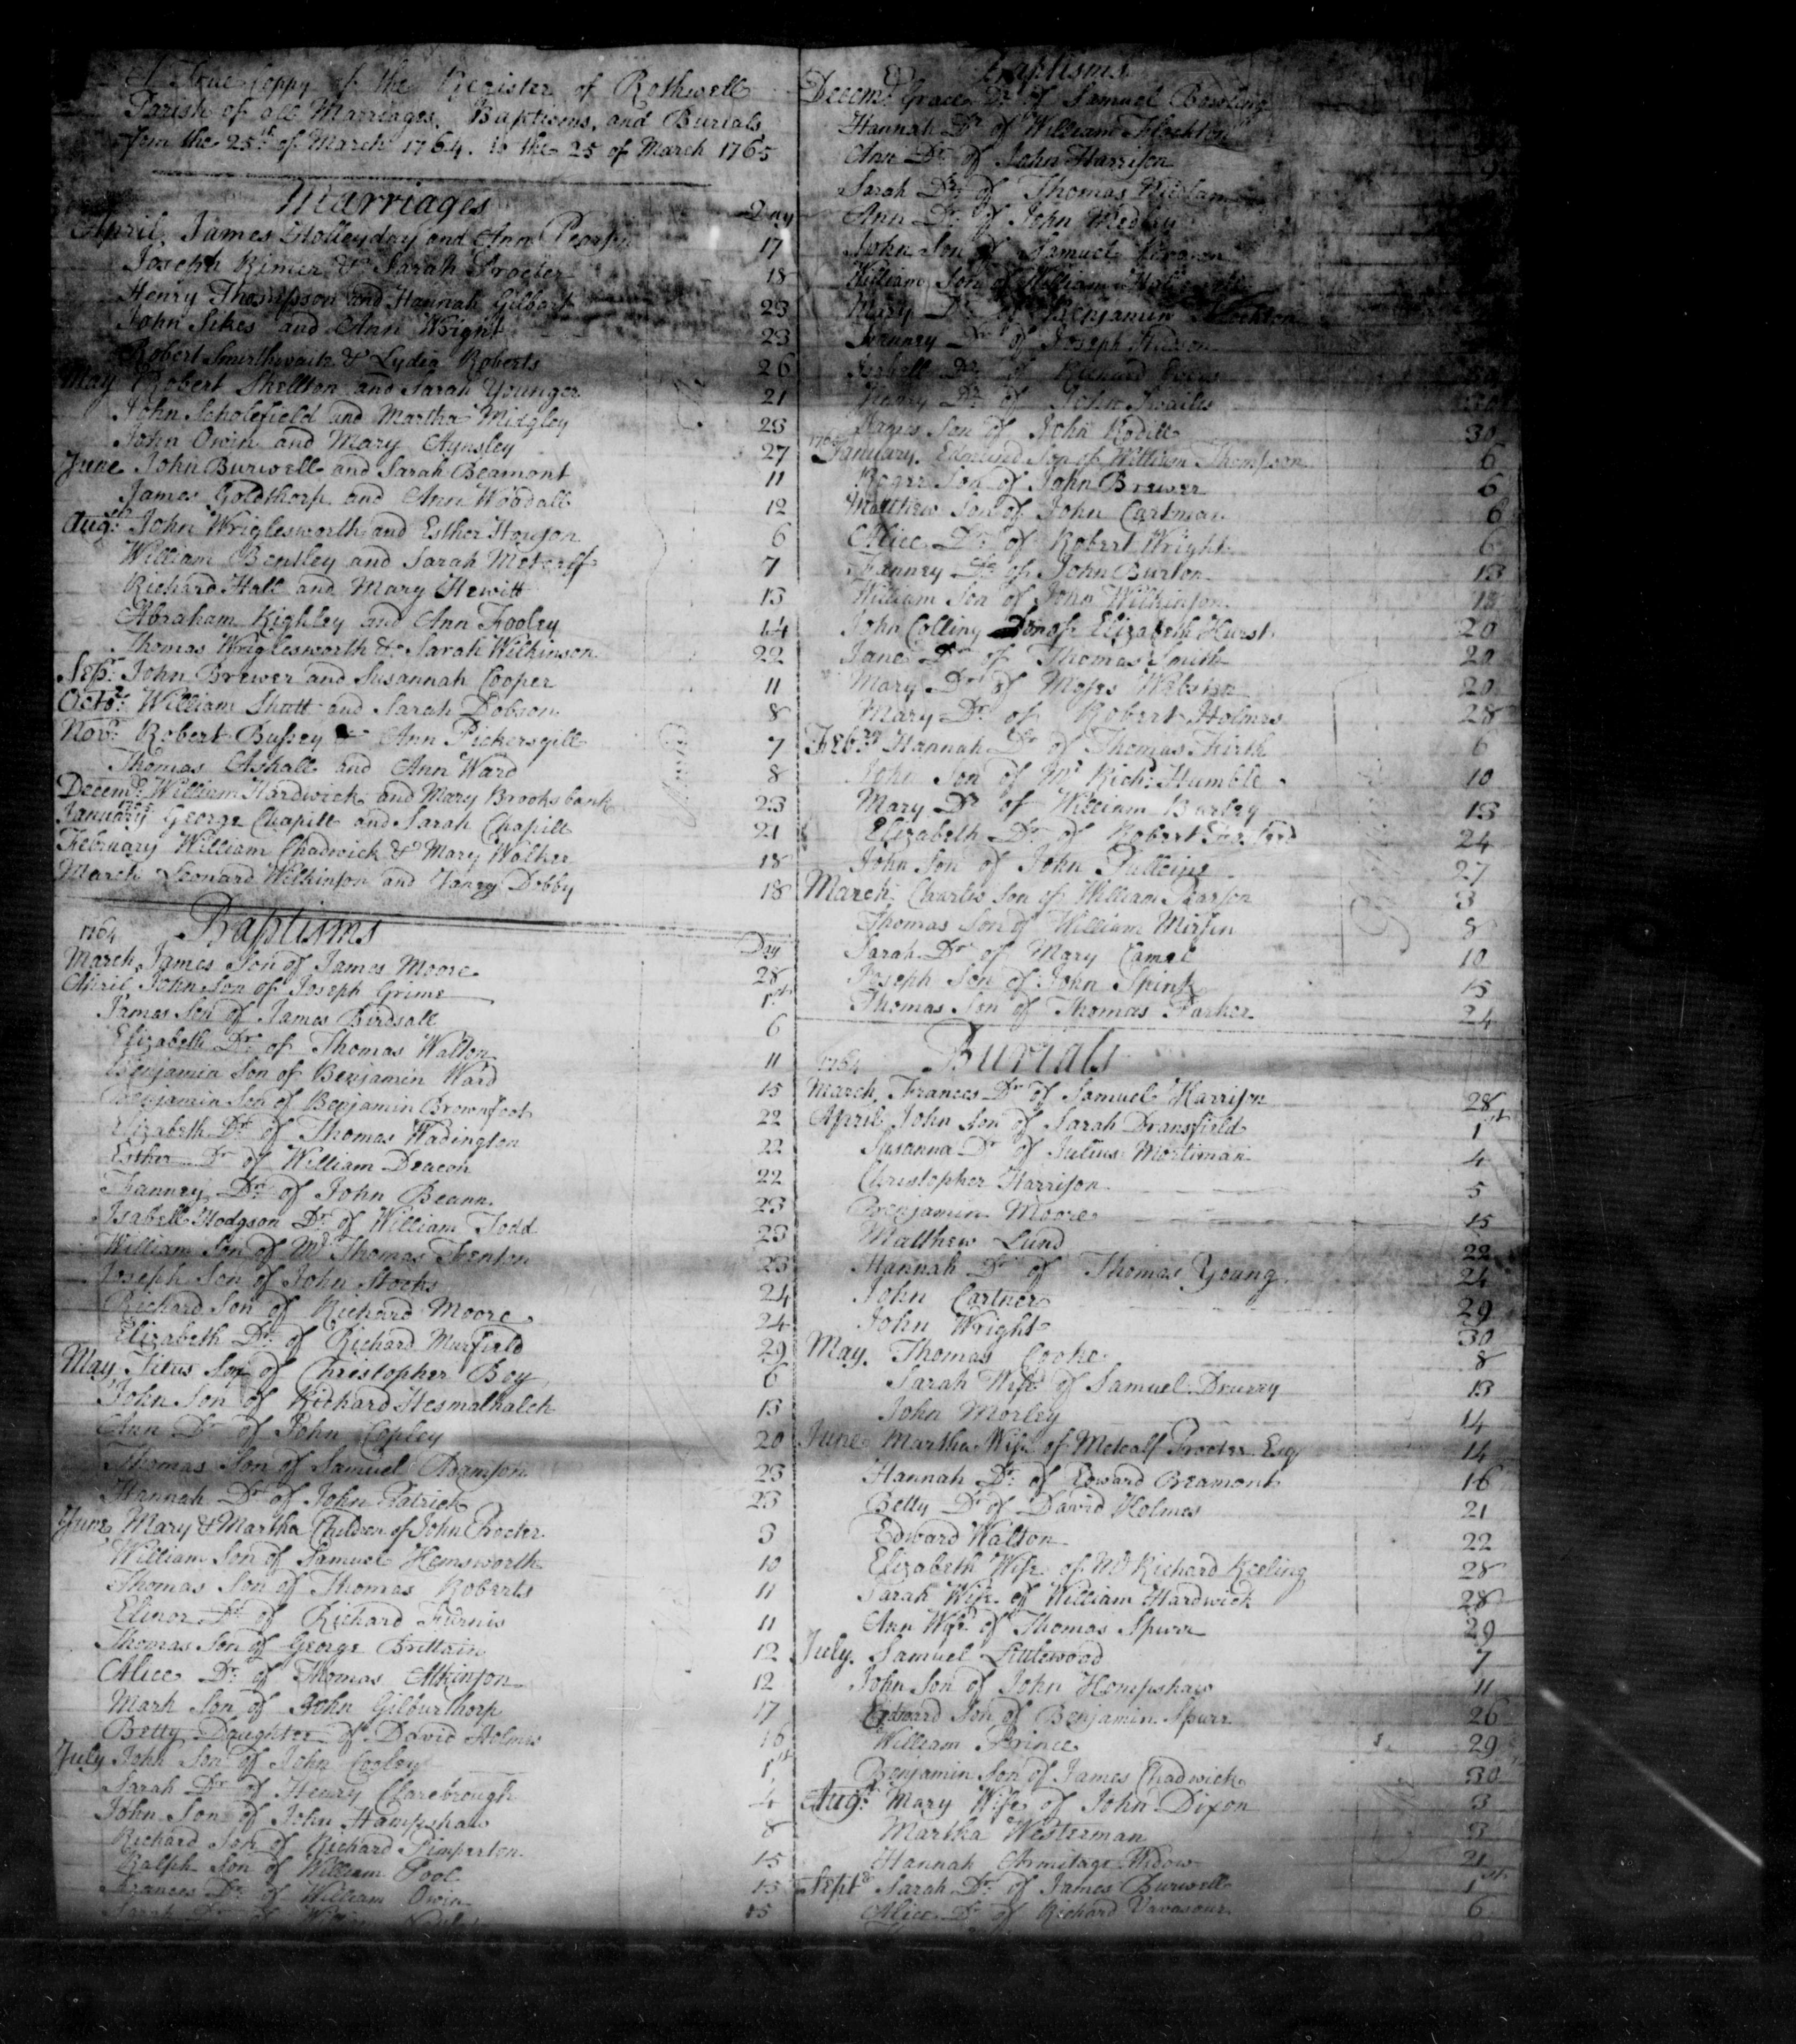 A True Coppy of the Register of Rothwell
Parish of all Marriages, Baptisms, and Burials
from the 25th of March 1764. to the 25 of March 1765
Marriages Day
April. James Holleyday and Ann Pearson 17
Joseph Rimer & Sarah Procter 18
Henry Thompson and Hannah Gilbert 23
John Sikes and Ann Wright 23
Robert Smurthwaite & Lydia Roberts 26
May Robert Skellton and Sarah Younger 21
John Scholefield and Martha Midgley 23
John Owin and Mary Aynsley 27
June John Burwell and Sarah Beamont 11
James Goldthorp and Ann Woodall 12
Augst John Wriglesworth and Esther Howson 6
William Bentley and Sarah Metcalf 7
Richard Hall and Mary Hewitt 13
Abraham Kighley and Ann Fooley 14
Thomas Wriglesworth & Sarah Wilkinson 22
Sepr: John Brewer and Susannah Cooper 11
Octor: William Shutt and Sarah Dobson 8
Novr Robert Bussey & Ann Pickersgill 7
Thomas Askall and Ann Ward 8
Decemr William Hardwick and Mary Brooksbank 23
January 1765 George Chapill and Sarah Chapill 21
February William Chadwick & Mary Walker 18
March Leonard Wilkinson and Fanny Dobby 18
1764 Baptisms Day
March James Son of James Moore 28
April John Son of Joseph Grime 1st
James Son of James Birdsall 6
Elizabeth Dr: of Thomas Walton 11
Benjamin Son of Benjamin Ward 15
Benjamin Son of Benjamin Brownfoot 22
Elizabeth Dr of Thomas Wadington 22
Esther Dr of William Deacon 22
Fanney Dr: of John Beann 23
Isabell Hodgson Dr: of William Todd 23
William Son of Mr Thomas Fenton 23
Joseph Son of John Stocks 24
Richard Son of Richard Moore 24
Elizabeth Dr: of Richard Murfield 29
May Titus Son of Christopher Bey 6
John Son of Richard Hesmalhalch 13
Ann Dr of John Copley 20
Thomas Son of Samuel Adamson 23
Hannah Dr of John Patrick 23
June Mary & Martha Children of John Procter 3
William Son of Samuel Hemsworth 10
Thomas Son of Thomas Roberts 11
Elinor Dr of Richard Furnis 11
Thomas Son of George Brittain 12
Alice Dr: of Thomas Atkinson 12
Mark Son of John Gilburthorp 17
Betty Daughter of David Holmes 16
July John Son of John Cooley 1st
Sarah Dr of Henry Clarebrough 4
John Son of John Hampshaw 8
Richard Son of Richard Pimperton 15
Ralph Son of William Pool 15
Frances Dr: of William Owin 15
Sarah Dr of William
Baptisms
Decemr Grace Dr of Samuel Bowling
Hannah Dr of William Flockton
Ann Dr of John Harrison 9
Sarah Dr: of Thomas
Ann Dr of John Medley
John Son of Samuel
William Son of William
Mary Dr of Benjamin Flockton
Dr of Joseph Hudson
Isabell Dr of Richard
Dr: of John Thwaites
James Son of John Rodill 30
1765 January. Edmund Son of William Thompson 6
Roger Son of John Brewer 6
Matthew Son of John Cartman 6
Alice Dr of Robert Wright 6
Fanney Dr of John Burton 13
William Son of John Wilkinson 18
John Colling Son of Elizabeth Hurst 20
Jane Dr of Thomas Smith 20
Mary Dr: of Moses Webster 20
Mary Dr. of Robert Holmes 28
Febry Hannah Dr of Thomas Firth 6
John Son of Mr Richd Humble 10
Mary Dr of William Burley 13
Elizabeth Dr: of Robert 24
John Son of John Pulleine 27
March Charles Son of William Pearson 3
Thomas Son of William Mirfin 8
Sarah Dr of Mary Camel 10
Joseph Son of John Spink 15
Thomas Son of Thomas Parker 24
1764 Burials
March, Frances Dr of Samuel Harrison 28
April John Son of Sarah Dransfield 1st
Susanna Dr of Julius Mortiman 4
Christopher Harrison 5
Benjamin Moore 15
Matthew Lund 22
Hannah Dr of Thomas Young 24
John Cartner 29
John Wright 30
May. Thomas Cooke 8
Sarah Wife of Samuel Drurey 13
John Morley 14
June Martha Wife of Metcalf Procter Esq 14
Hannah Dr: of Edward Beamont 16
Betty Dr of David Holmes 21
Edward Walton 22
Elizabeth Wife of Mr Richard Keeling 28
Sarah Wife of William Hardwick 28
Ann Wife of Thomas Spurr 29
July. Samuel Littlewood 7
John Son of John Hempshaw 11
Edward Son of Benjamin Spurr 26
William Prince 29
Benjamin Son of James Chadwick 30
Augst Mary Wife of John Dixon 3
Martha Westerman 3
Hannah Armitage Widow 21
Septr Sarah Dr: of James Burwell 1st
Alice Dr of Richard Vavasour 6